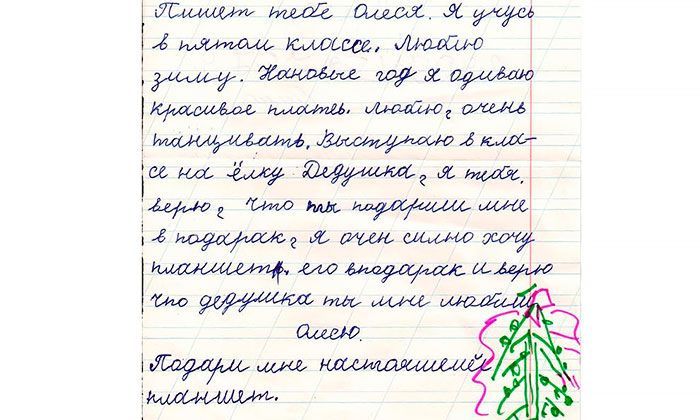 Пишет тебе Олеся. Я учусь
в пятом классе. Люблю
зиму. Нановые год я одиваю
красивое платев. Люблю, очень
танцивать. Выступаю в кла-
се на ёлку Дедушка, я тебя,
верю, что ты подариш мне
в подарак, я очен силно хочу
планшет. его вподарак и верю
что дедушка ты мне любиш
Олесю.
Подари мне настояшемей
планшет.